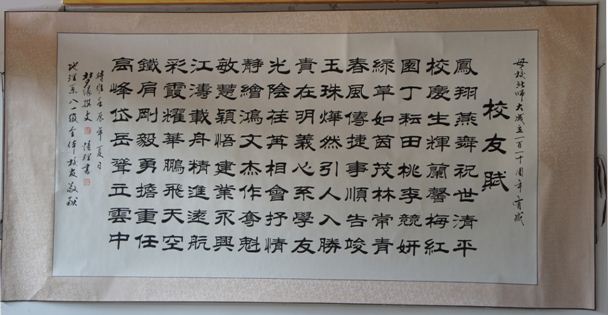 母校北師大成立一百一十周年有感
校友賦
鳳翔燕舞祝世清平
校慶生輝蘭馨梅紅
園丁耘田桃李競妍
綠草如茵茂林常青
春風僖捷事順告竣
玉珠燁然引人入勝
貴在明義心系學友
光陰荏苒相會抒情
靜繪鴻文杰作奪魁
敏慧穎悟建業永興
江濤載舟精進遠航
彩霞耀華鵬飛天空
鐵肩剛毅勇擔重任
高峰岱岳聳立雲中
時維壬辰年夏月
撰文 書
地理系八一級全体校友敬献